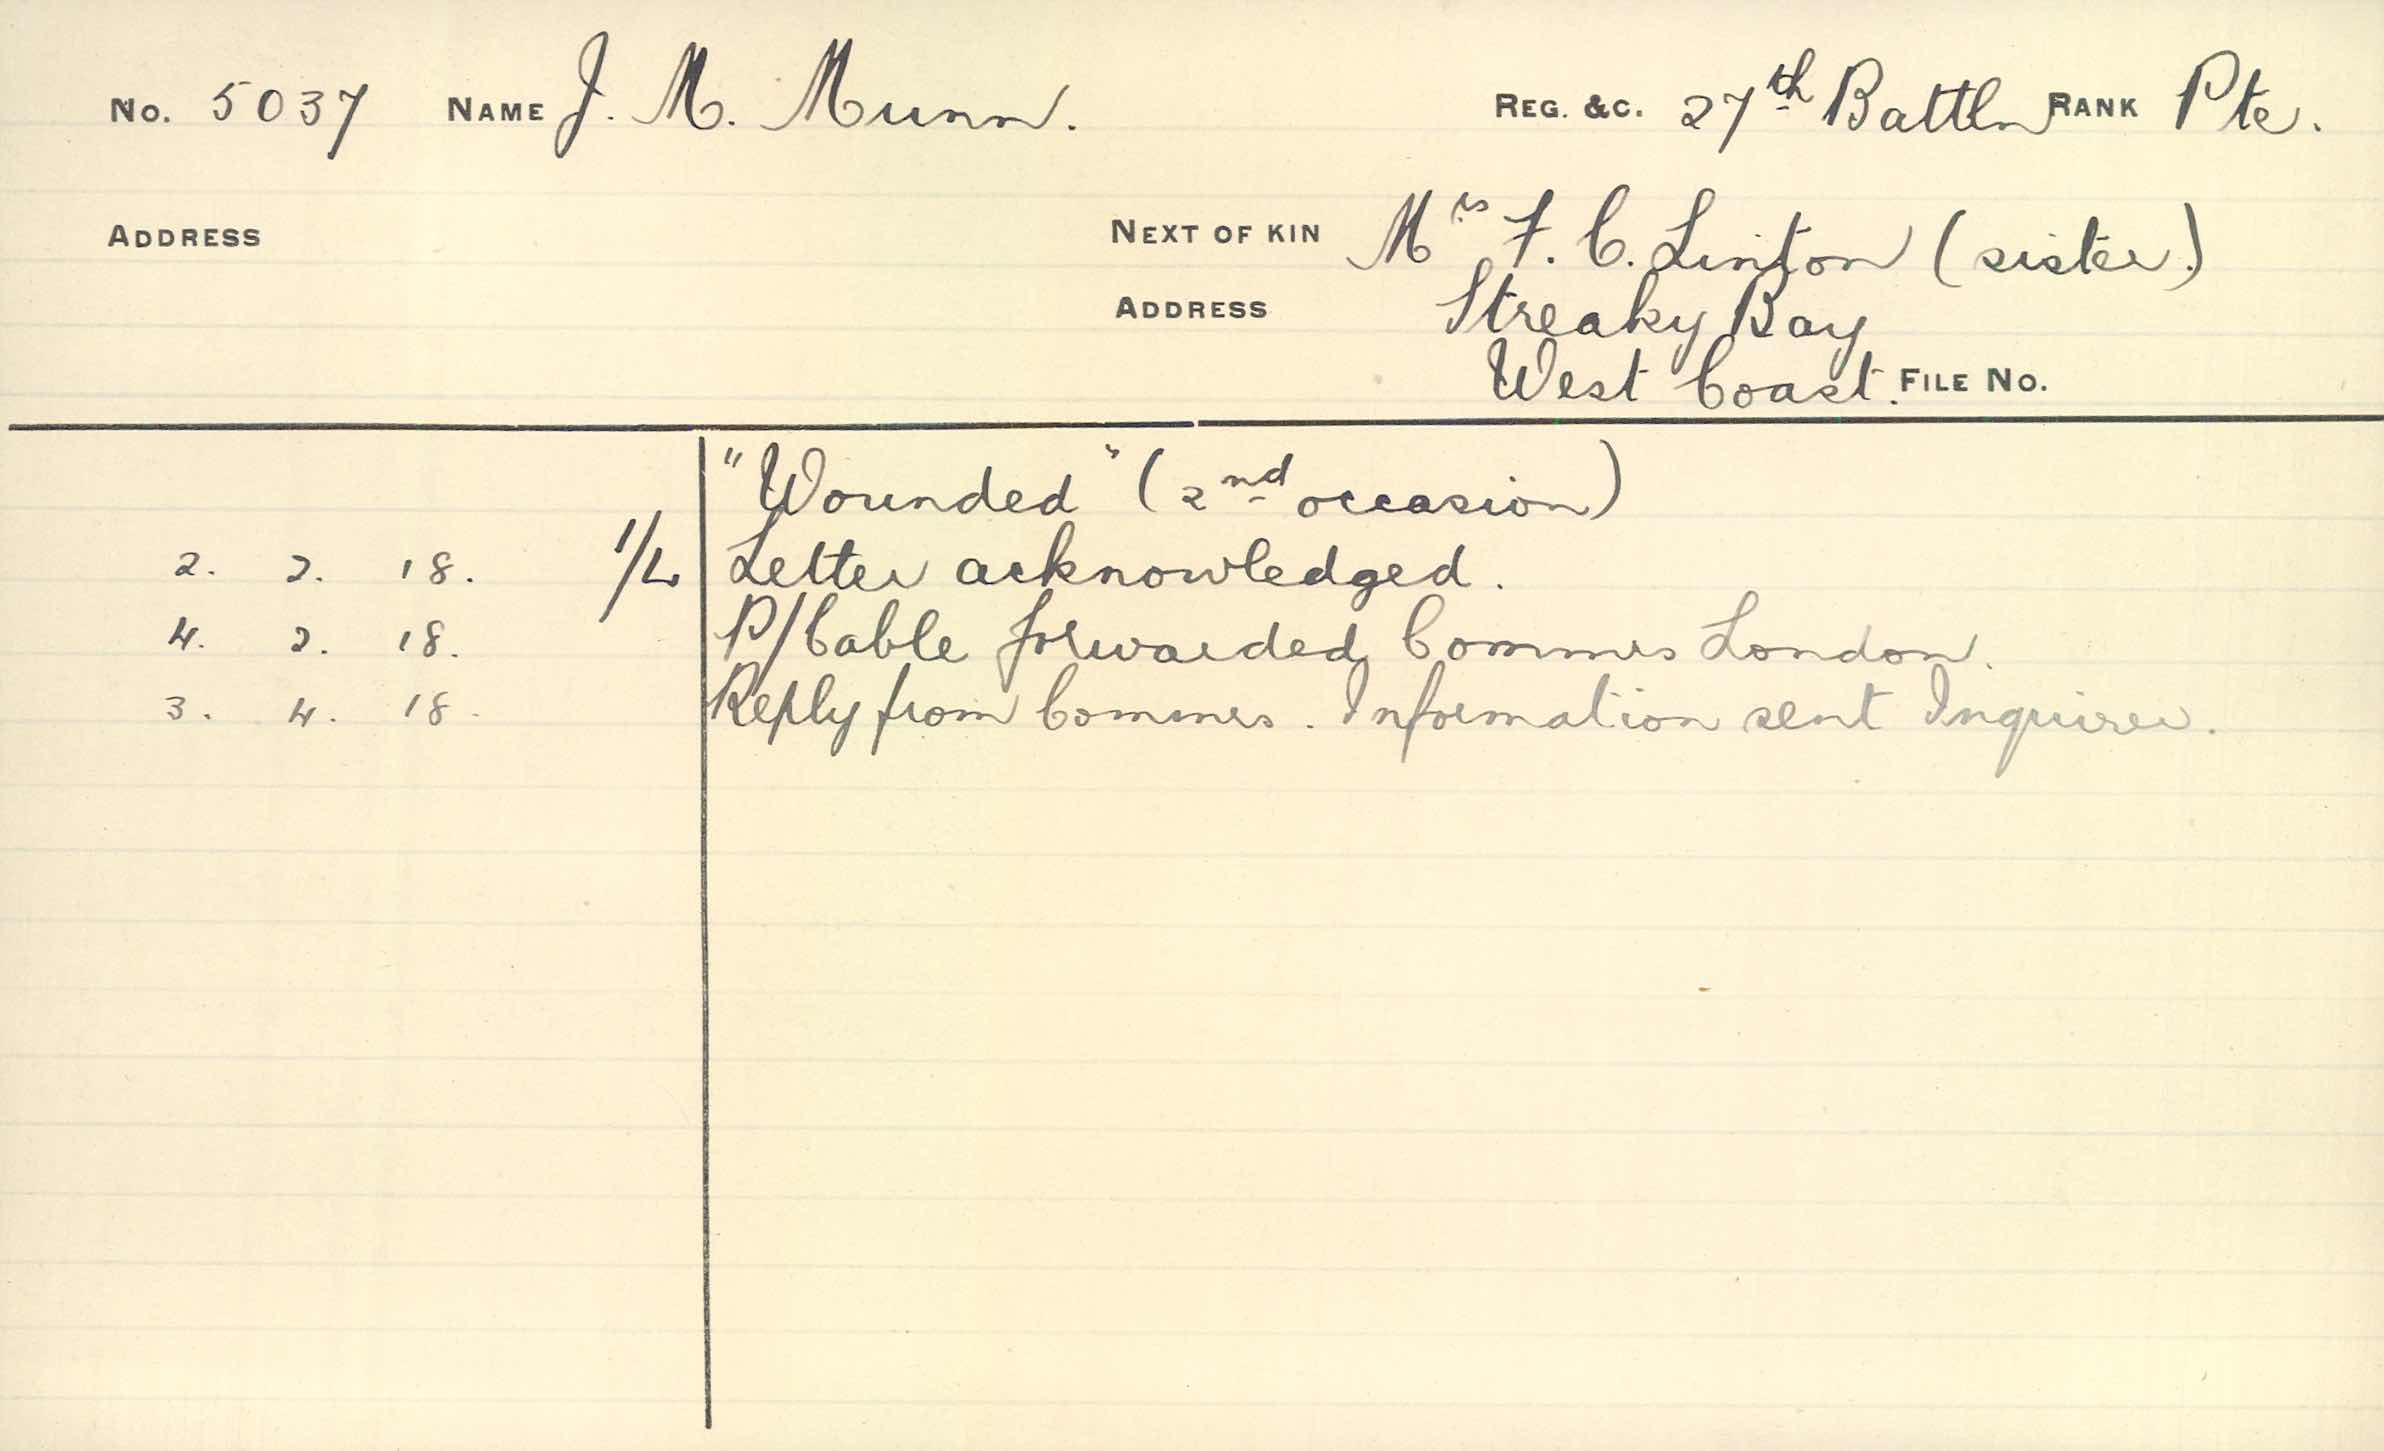 No. 5037 NAME J. M. Munn. REG. &C. 27th Battln RANK Pte.
ADDRESS NEXT OF KIN Mrs F. C. Linton (sister.)
ADDRESS Streaky Bay
West Coast. FILE No.
"Wounded" (2nd occasion)
2. 2. 18. 1/L Letter acknowledged.
4. 2. 18. P/Cable forwarded Commrs London.
3. 4. 18. Reply from Commrs. Information sent Inquirer.